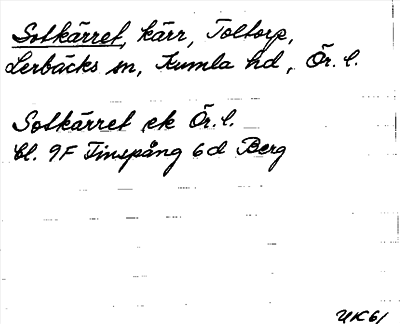 Sotkärret, kärr, Toltorp,
Lerbäcks sn, Kumla hd, Ör. l.
Sotkärret ek Ör. l.
bl. 9F Finspång 6d Berg
UK61